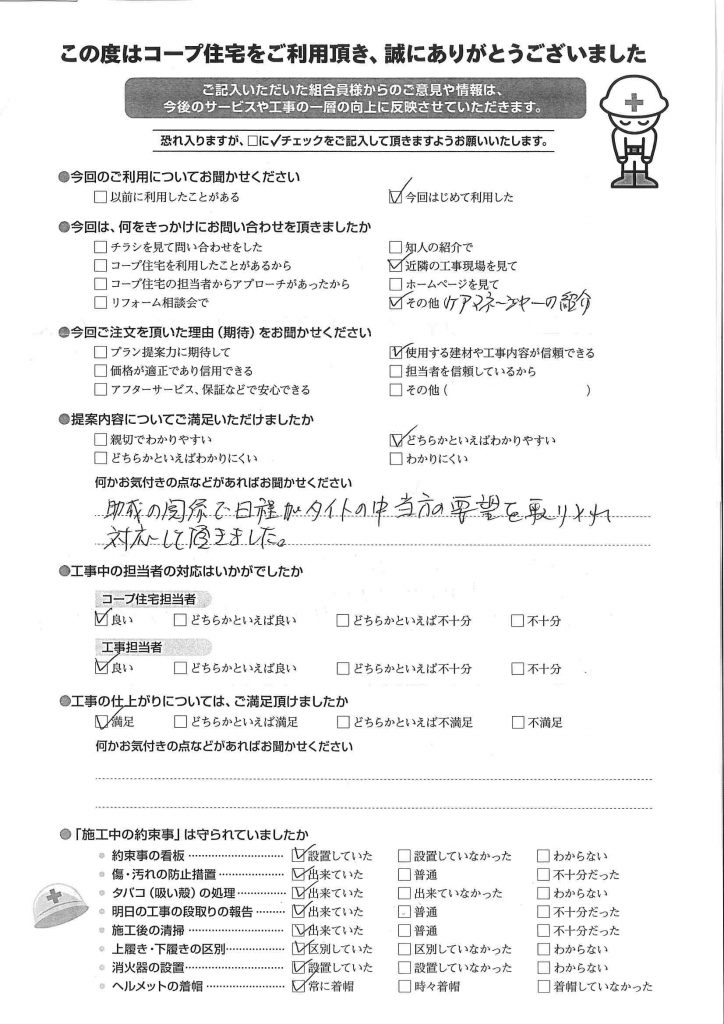 この度はコープ住宅をご利用頂き、誠にありがとうございました
ご記入いただいた組合員様からのご意見や情報は、
今後のサービスや工事の一層の向上に反映させていただきます。
恐れ入りますが、□に✓チェックをご記入して頂きますようお願いいたします。
●今回のご利用についてお聞かせください
□以前に利用したことがある ☑今回はじめて利用した
●今回は、何をきっかけにお問い合わせを頂きましたか
□チラシを見て問い合わせをした □知人の紹介で
□コープ住宅を利用したことがあるから ☑近隣の工事現場を見て
□コープ住宅の担当者からアプローチがあったから □ホームページを見て
□リフォーム相談会で ☑その他 ケアマネージャーの紹介
●今回ご注文を頂いた理由(期待)をお聞かせください
□プラン提案力に期待して ☑使用する建材や工事内容が信頼できる
□価格が適正であり信用できる □担当者を信頼しているから
□アフターサービス、保証などで安心できる □その他( )
●提案内容についてご満足いただけましたか
□親切でわかりやすい ☑どちらかといえばわかりやすい
□どちらかといえばわかりにくい □わかりにくい
何かお気付きの点などがあればお聞かせください
助成の関係で日程がタイトの中当方の要望を取り入れ
対応して頂きました。
●工事中の担当者の対応はいかがでしたか
コープ住宅担当者
☑良い □どちらかといえば良い □どちらかといえば不十分 □不十分
工事担当者
☑良い □どちらかといえば良い □どちらかといえば不十分 □不十分
●工事の仕上がりについては、ご満足頂けましたか
☑満足 □どちらかといえば満足 □どちらかといえば不満足 □不満足
何かお気付きの点などがあればお聞かせください
●「施工中の約束事」は守られていましたか
約束事の看板 ☑設置していた □設置していなかった □わからない
傷・汚れの防止措置 ☑出来ていた □普通 □不十分だった
タバコ(吸い殻)の処理 ☑出来ていた □出来ていなかった □わからない
明日の工事の段取りの報告 ☑出来ていた □普通 □不十分だった
施工後の清掃 ☑出来ていた □普通 □不十分だった
上履き・下履きの区別 ☑区別していた □区別していなかった □わからない
消火器の設置 ☑設置していた □設置していなかった □わからない
ヘルメットの着帽 ☑常に着帽 □時々着帽 □着帽していなかった